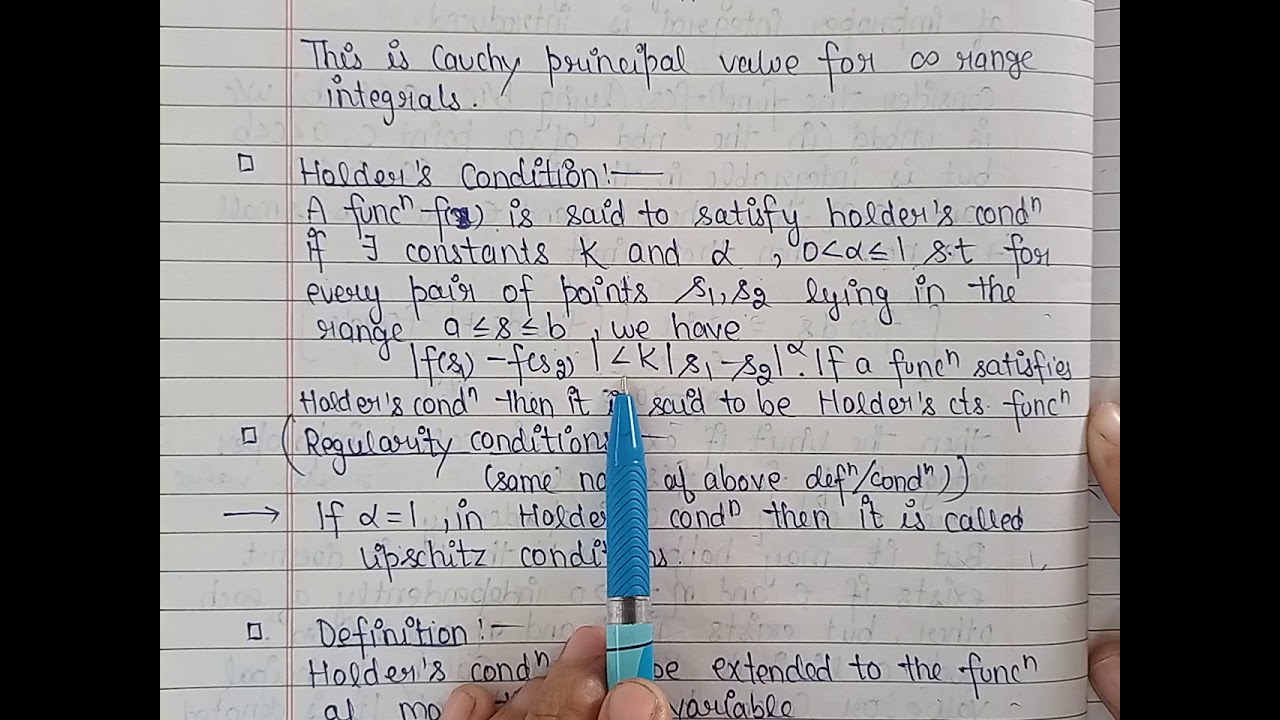 This is Cauchy principal value for ∞ range
integrals.
□ Holder's Condition:—
A funcⁿ f(s) is said to satisfy holder's condⁿ
if ∃ constants K and α, 0<α≤1 s.t for
every pair of points s₁, s₂ lying in the
range a≤s≤b, we have
|f(s₁) - f(s₂)| < K|s₁-s₂|^α. If a funcⁿ satisfies
Holder's condⁿ then it said to be Holder's cts. funcⁿ
□ (Regularity conditions —
(same of above defⁿ/condⁿ))
→ If α=1, in Holder condⁿ then it is called
Lipschitz
□. Definition:—
Holder's condⁿ be extended to the funcⁿ
variable